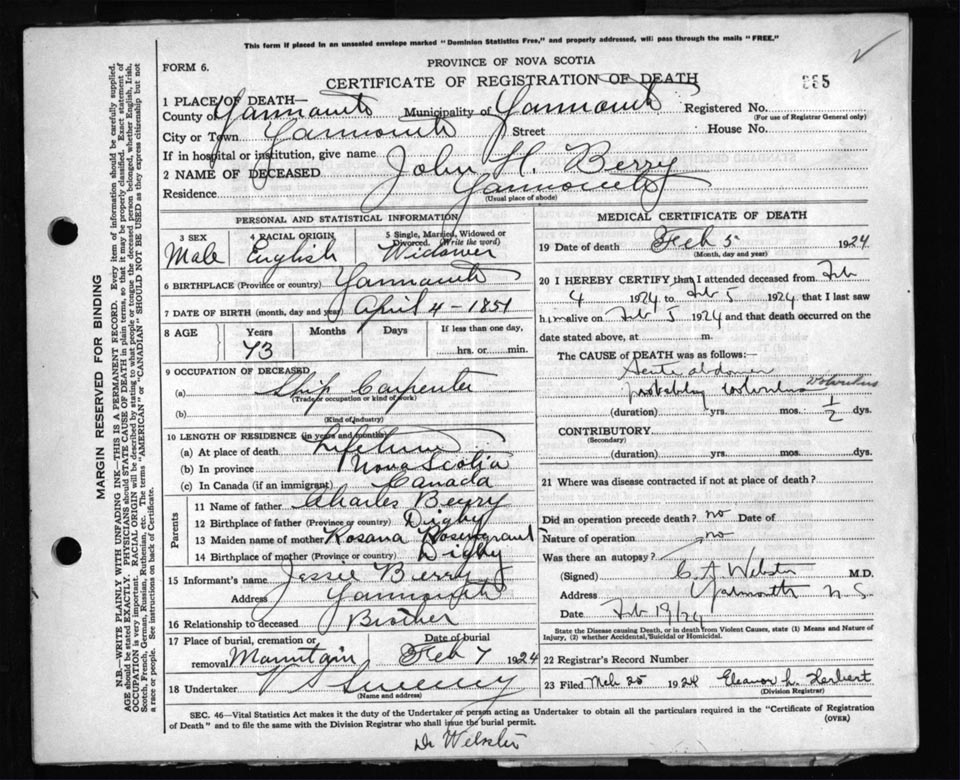 This form if placed in an unsealed envelope marked "Dominion Statistics Free," and properly addressed, will pass through the mails "FREE."
FORM 6.
PROVINCE OF NOVA SCOTIA
CERTIFICATE OF REGISTRATION OF DEATH
1 PLACE OF DEATH—
County of Yarmouth Municipality of Yarmouth Registered No.
(For use of Registrar General only)
City or Town Yarmouth Street House No.
If in hospital or institution, give name
2 NAME OF DECEASED John H. Berry
Residence Yarmouth
(Usual place of abode)
PERSONAL AND STATISTICAL INFORMATION
3 SEX 4 RACIAL ORIGIN 5 Single, Married, Widowed or Divorced. (Write the word)
Male English Widower
6 BIRTHPLACE (Province or country) Yarmouth
7 DATE OF BIRTH (month, day and year) April 4 - 1851
8 AGE Years Months Days If less than one day,
73 hrs. or min.
9 OCCUPATION OF DECEASED
(a) Ship Carpenter
Trade, occupation or kind of work)
(b)
(Kind of Industry)
10 LENGTH OF RESIDENCE (in years and months)
(a) At place of death Lifetime
(b) In province Nova Scotia
(c) In Canada (if an immigrant) Canada
Parents
11 Name of father Charles Berry
12 Birthplace of father (Province or country) Digby
13 Maiden name of mother Rosana Rosengrant
14 Birthplace of mother (Province or country) Digby
15 Informant's name Jessie Berry
Address Yarmouth
16 Relationship to deceased Brother
17 Place of burial, cremation or Date of burial
removal Mountain Feb 7 1924
18 Undertaker V S Sweeny
(Name and address)
MEDICAL CERTIFICATE OF DEATH
19 Date of death Feb 5 1924
(Month, day and year)
20 I HEREBY CERTIFY that I attended deceased from Feb
4 1924 to Feb 5 1924 that I last saw
him alive on Feb 5 1924 and that death occurred on the
date stated above, at m.
The CAUSE of DEATH was as follows:—
Acute abdomen
probably volvulus Volvulus
(duration) yrs. mos. 1/2 dys.
CONTRIBUTORY
(Secondary)
(duration) yrs. mos. dys.
21 Where was disease contracted if not at place of death?
Did an operation precede death? no Date of
Nature of operation no
Was there an autopsy?
(Signed) C A Webster M.D.
Address Yarmouth N.S.
Date Feb 19/24
State the Disease causing Death, or in death from Violent Causes, state (1) Means and Nature of
Injury, (2) whether Accidental, Suicidal or Homicidal.
22 Registrar's Record Number
23 Filed Mch 25 1924 Eleanor L. Herbert
(Division Registrar)
SEC. 46—Vital Statistics Act makes it the duty of the Undertaker or person acting as Undertaker to obtain all the particulars required in the "Certificate of Registration
of Death" and to file the same with the Division Registrar who shall issue the burial permit.
(OVER)
Dr Webster
MARGIN RESERVED FOR BINDING
N.B.—WRITE PLAINLY WITH UNFADING INK—THIS IS A PERMANENT RECORD. Every item of information should be carefully supplied.
AGE should be stated EXACTLY. PHYSICIANS should STATE CAUSE OF DEATH in plain terms, so that it may be properly classified. Exact statement of
OCCUPATION is very important. RACIAL ORIGIN will be described by stating to what people or tongue the deceased person belonged, whether English, Irish,
Scotch, French, German, Russian, Ruthenian, etc. The terms "AMERICAN" or "CANADIAN" SHOULD NOT BE USED as they express citizenship but not
a race or people. See instructions on back of Certificate.